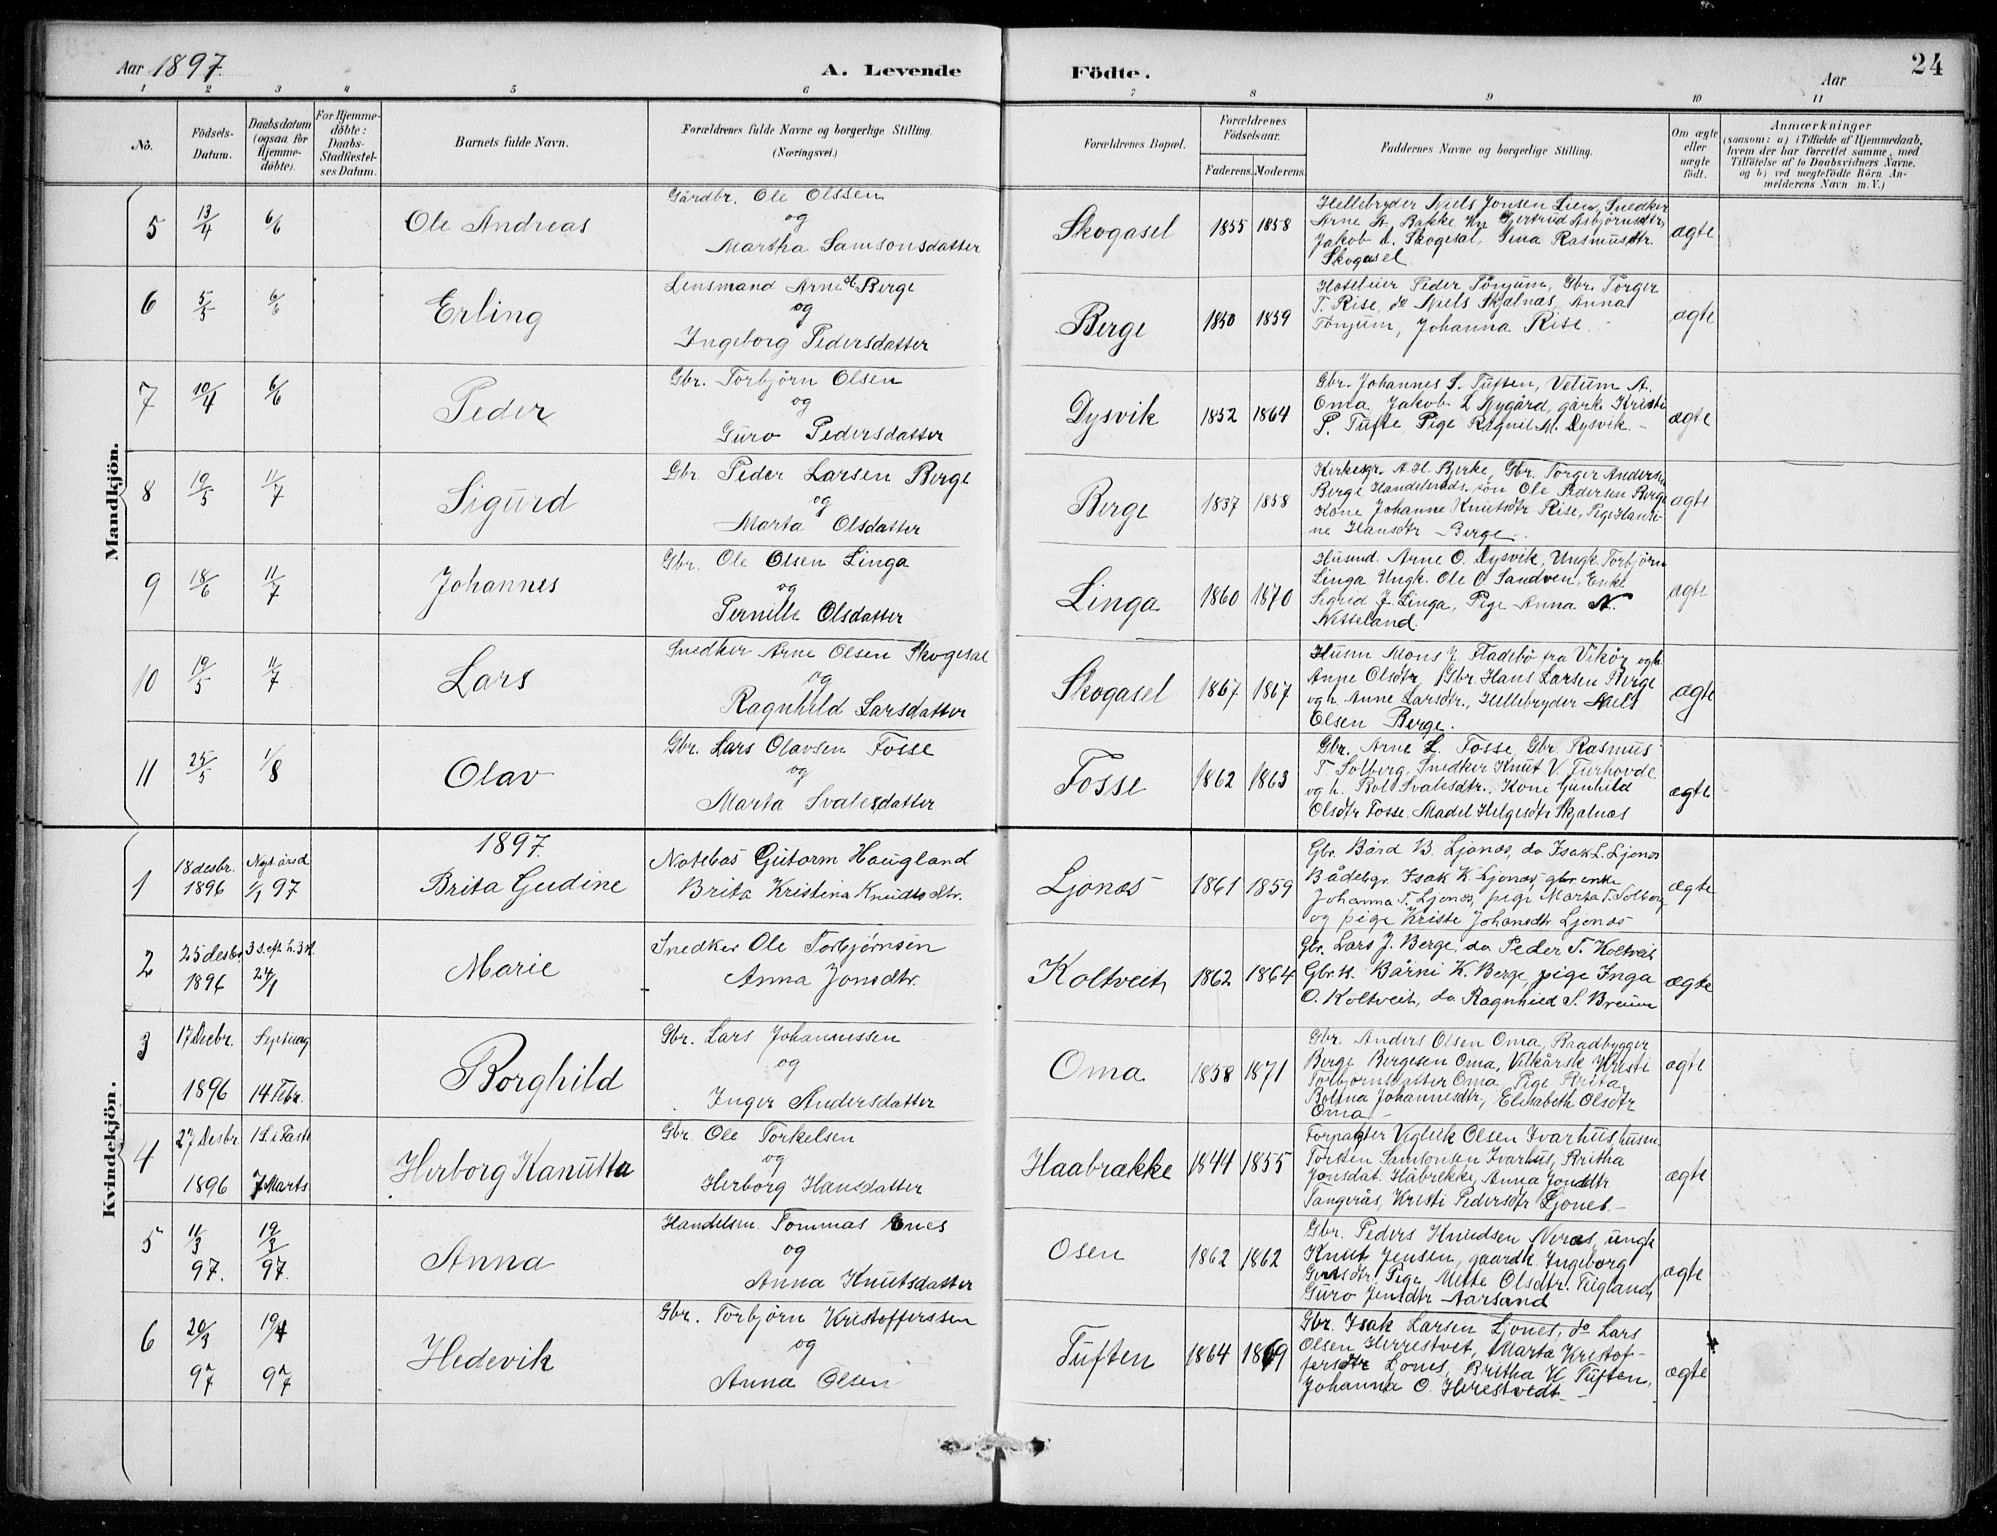 Aar 1897.
A. Levende Födte.
Aar
24
1 2 3 4 5 6 7 8 9 10 11
No.
Födsels-
Datum.
Daabsdatum
(ogsaa for
Hjemme-
döbte).
For Hjemme-
döbte:
Daabs-
Stadfæstel-
ses Datum.
Barnets fulde Navn.
Forældrenes fulde Navne og borgerlige Stilling.
(Næringsvei.)
Forældrenes Bopæl.
Forældrenes
Födselsaar.
Faderens. Moderens.
Faddernes Navne og borgerlige Stilling.
Om ægte
eller
uægte
födt.
Anmærkninger
(saasom: a) i Tilfælde af Hjemmedaab,
hvem der har forrettet samme, med
Tilföielse af to Daabsvidners Navne,
og b) ved uægtefödte Börn An-
melderens Navn m. V.)
Mandkjön.
5 13/4 6/6 Ole Andreas
Gårdbr. Ole Olssen
og
Martha Samsonsdatter
Skogasel 1855 1858
Hellebryder Niels Jonsen Lien, Snedker
Arne A. Bakke Gjertrud Asbjørnsdtr,
Jakob A. Skogesal, Sina Rasmusdtr.
Skogasel
ægte
6 5/5 6/6 Erling
Lensmand Arne Berge
og
Ingeborg Pedersdatter
Berge 1850 1859
Hoteleier Peder Tönjum, Gbr. Torger
T. Rise, do Niels Skjælnæs, Anna
Tönjum, Johanna Rise.
ægte
7 10/4 6/6 Peder
Gbr. Torbjörn Olsen
og
Guro Pedersdatter
Dysvik 1852 1864
Gbr. Johannes S. Tuften, Vetum A.
Oma, Jakob L Nygård, gårk. Kristi
P. Tufte, Pige Ragnil M. Dysvik.
ægte
8 19/5 11/7 Sigurd
Gbr. Peder Larsen Berge
og
Marta Olsdatter
Berge 1857 1858
Kirkesgr. A. H. Bjerke, Gbr. Torger Anderse
Berge Handelsmds. sön Ole Pedersen Berge
Kone Johanne Knutsdtr Rise, Pige Hansi-
ne Hansdtr Berge
ægte
9 18/6 11/7 Johannes
Gbr. Ole Olsen Linga
og
Pernille Olsdatter
Linga 1860 1870
Husmd. Arne O. Dysvik, Ungk. Torbjörn
Linga, Ungk. Ole O. Sandven, Enke
Sigrid J. Linga, Pige Anna N.
Nesseland.
ægte
10 19/5 11/7 Lars
Snedker Arne Olsen Skogesal
og
Ragnhild Larsdatter
Skogasel 1867 1867
Husm Mons J. Fladebö fra Vikör og h.
Anne Olsdtr, Gbr. Hans Larsen Berge
og h. Anne Larsdtr., Hellebryder Niels
Olsen Berge.
ægte
11 25/5 1/8 Olav
Gbr. Lars Olavsen Fosse
og
Marta Svalesdatter
Fosse 1862 1863
Gbr. Arne L. Fosse, Gbr. Rasmus
T. Solberg, Snedker Knut V. Furhovde
og h. Bol Svalesdtr., Kone Gunhild
Olsdtr Fosse. Madel Helgesdtr Skjalnæs
ægte
Kvindekjön.
1897.
1 18 desbr. 1896 Nyt. årsd 1/1 97 Brita Gudine
Notebas Gutorm Haugland
Brita Kristina Knudtsdtr.
Ljonæs 1861 1859
Gbr. Bård B. Ljonæs, do Isak L. Ljonæs
Bådebgr. Isak K. Ljonæs, gbr.enke
Johanna T. Ljonæs, pige Marta T. Solberg
og pige Kristi Johansdtr Ljonæs
ægte
2 25 desbr 1896 3 s. eft. h. 3 K. 24/1 Marie
Snedker Ole Torbjørnsen
Anna Jonsdtr.
Koltveit 1862 1864
Gbr. Lars J. Berge, do Peder T. Koltveit,
Gbr.k. Bårni K. Berge, pige Inga
O. Koltveit, do Ragnhild S. Breum
ægte
3 17 Decbr. 1896 Septuag 14 Febr. Borghild
Gbr. Lars Johannessen
og
Inger Andersdatter
Oma 1858 1871
Gbr. Anders Olsen Oma, Baadbygger
Berge Bergesen Oma, Vilkårsk. Kristi
Torbjornsdatter Oma, Pige Brita
Bolina Johannesdtr, Elisabeth Olsdtr
Oma
ægte
4 27 Desbr 1896 1 S. i Faste 7 Marts Herborg Kanutta
Gbr. Ole Torkelsen
og
Herborg Hansdatter
Haabrække 1844 1855
Forpagter Vigleik Olsen Ivarhus, husm.
Torsten Samsonsen Ivarhus, Britha
Jonsdat. Håbrekke, Anna Jonsdtr
Tangerås, Kristi Pedersdtr Ljones
ægte
5 11/3 97. 19/3 97. Anna
Handelsm. Tommas Enes
og
Anna Knutsdatter
Osen 1862 1862
Gbr. Peders Knudsen Neraas, ungk
Knut Jensen, gaardk. Ingeborg
Pige, Mette Olsdtr. Teigland,
Guro Jensdtr Aarsand
ægte
6 20/3 97 19/4 97 Hedevik
Gbr. Torbjörn Kristofferssen
og
Anna Olsen
Tuften 1864 1869
Gbr. Isak Larsen Ljones, do Lars
Olsen Herrestvet, Marta Kristof-
fersdtr Ljones, Britha K. Tuften,
Johanna O. Herrestvedt
ægte